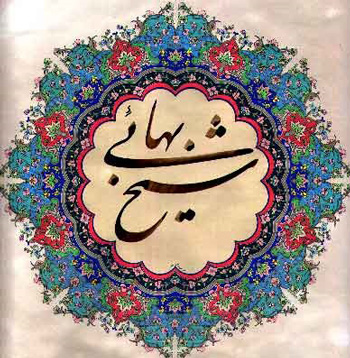 شیخ بهائی